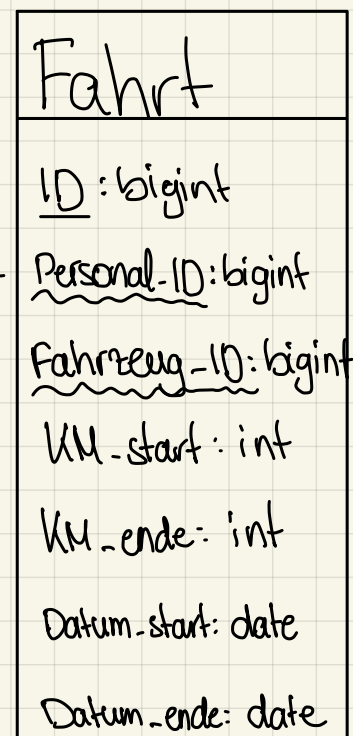 Fahrt
ID : bigint
Personal-ID: bigint
Fahrzeug_ID: bigint
KM_start: int
KM_ende: int
Datum_start: date
Datum_ende: date